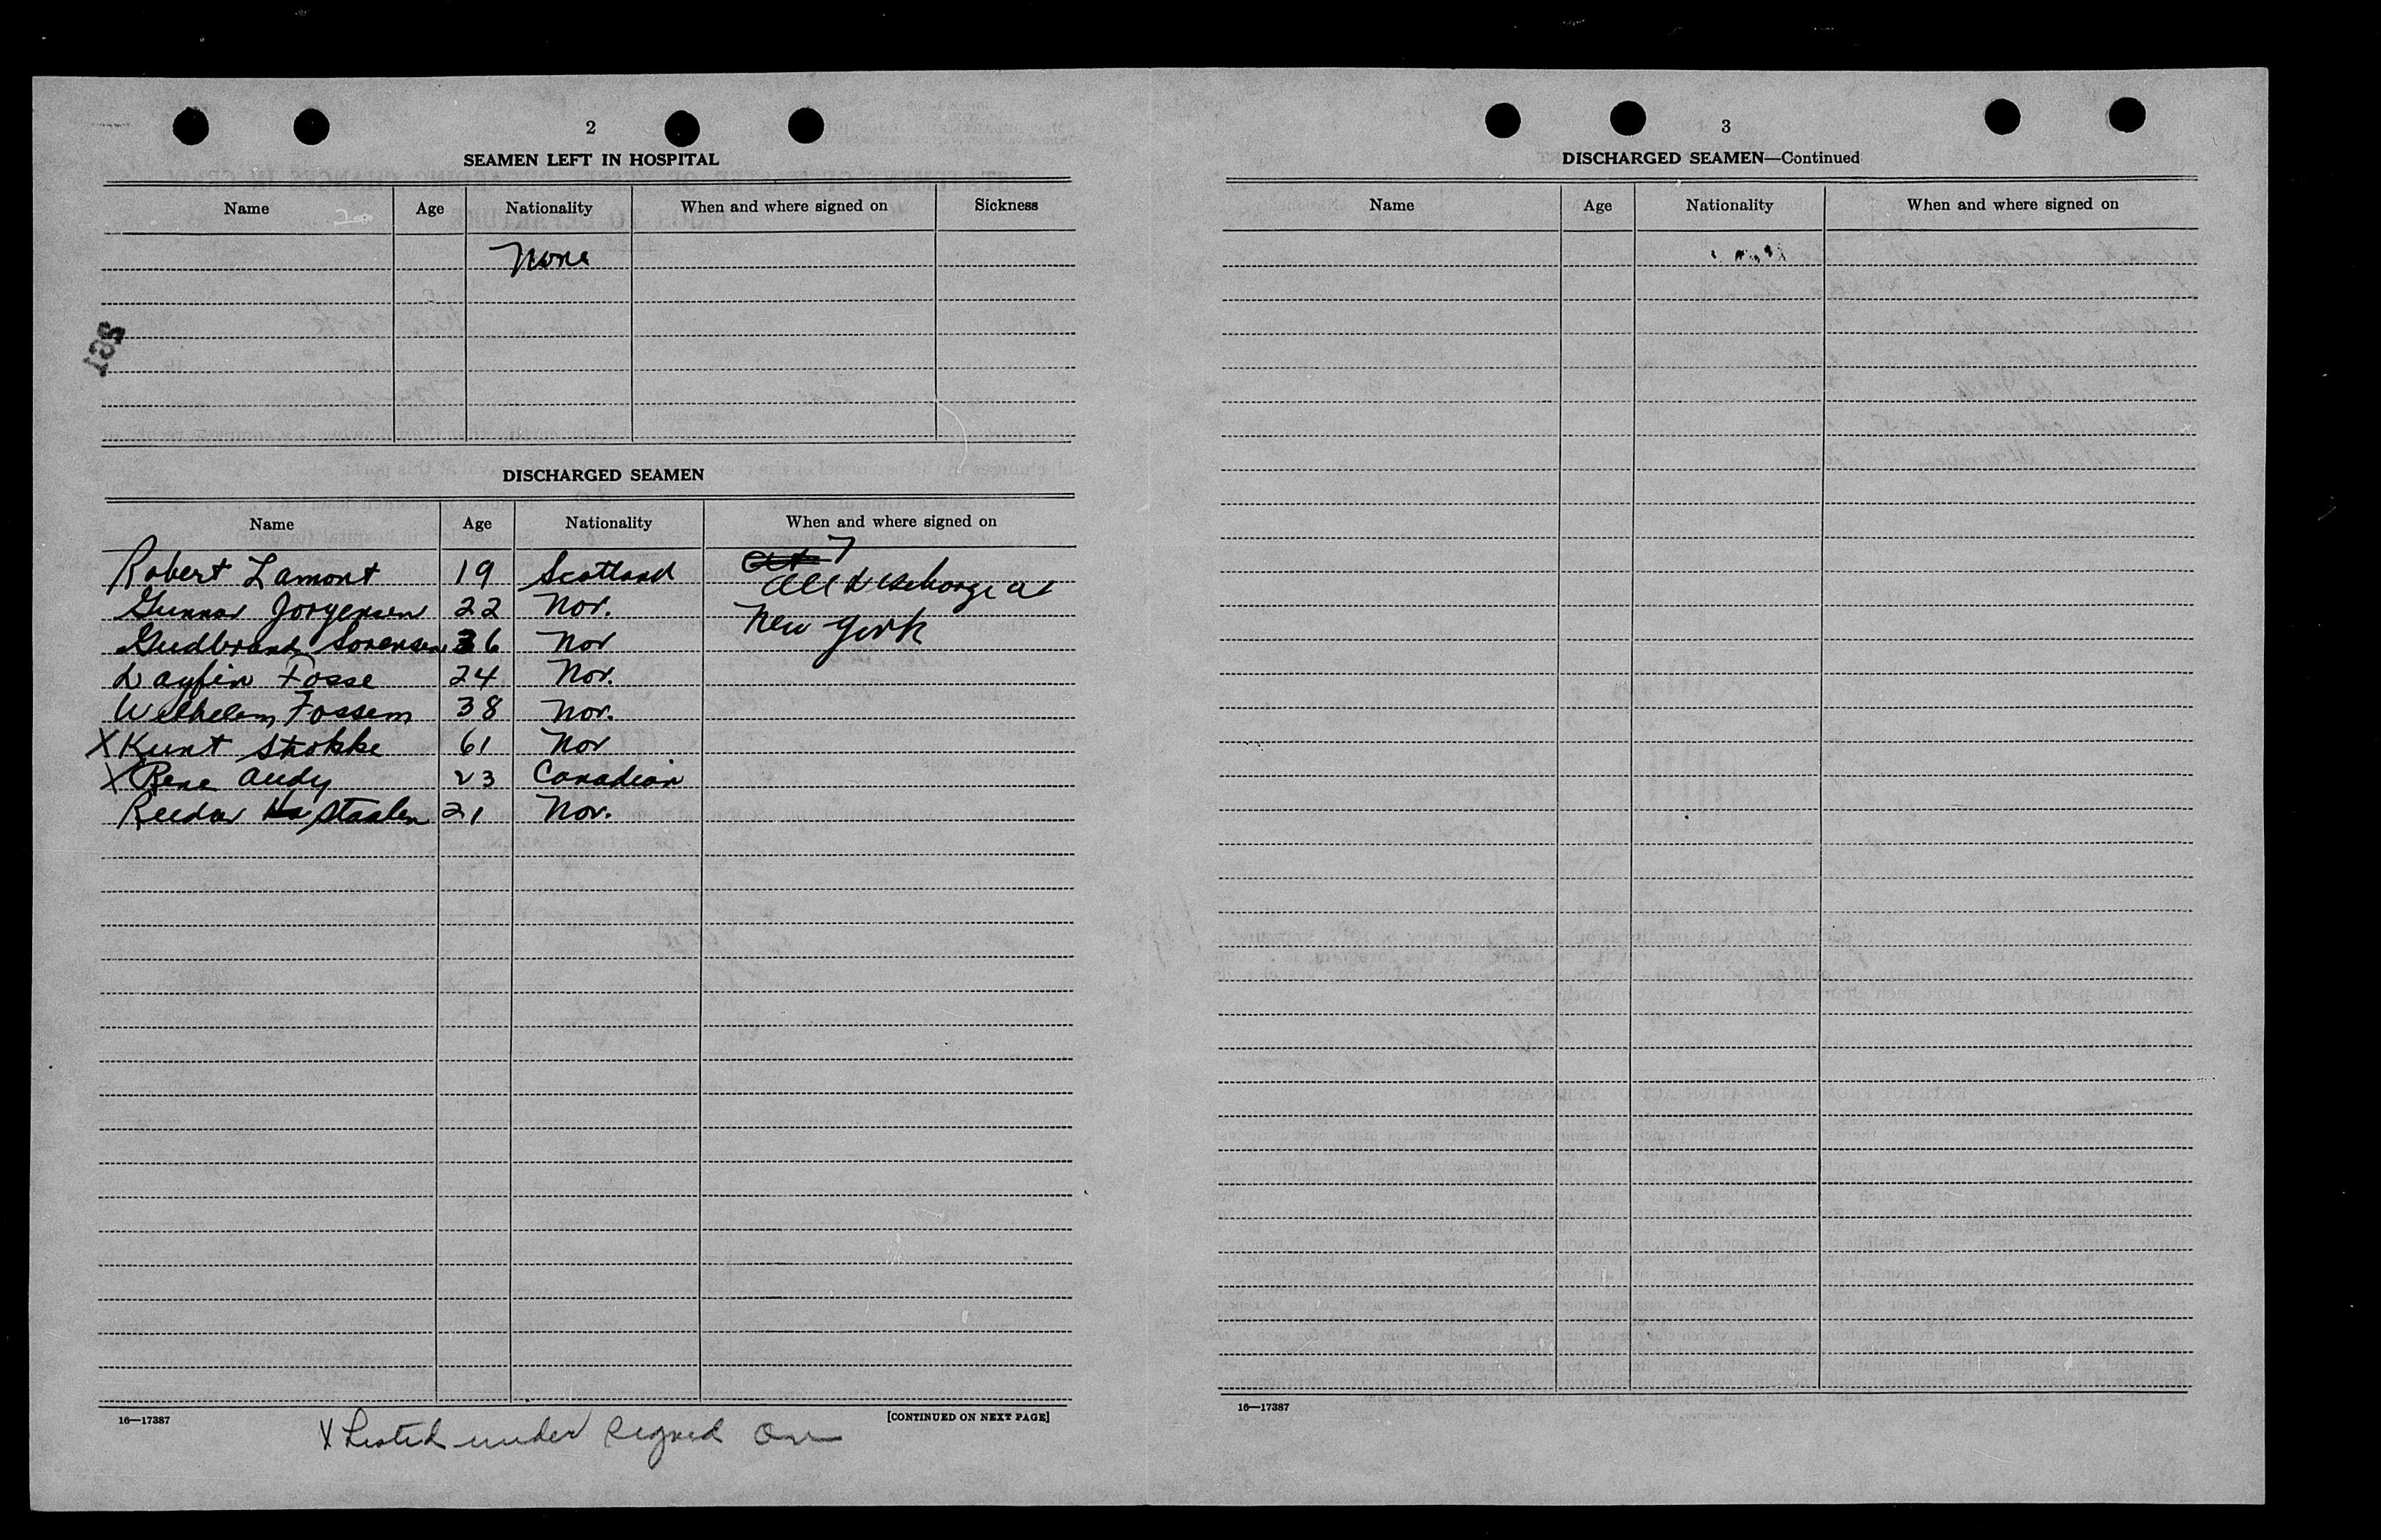 2
SEAMEN LEFT IN HOSPITAL
Name Age Nationality When and where signed on Sickness
None
DISCHARGED SEAMEN
Name Age Nationality When and where signed on
Robert Lamont 19 Scotland Oct 7
All discharge at
Gunnar Jorgensen 22 Nor. New York
Gudbrand Sorensen 36 Nor
Dagfin Fosse 24 Nor.
Wilhelem Fossem 38 Nor.
X Kunt Stokke 61 Nor
X Rene Audy 23 Canadian
Reedar Ha Staalen 21 Nor.
16—17387
[CONTINUED ON NEXT PAGE]
X Listed under signed on
3
DISCHARGED SEAMEN—Continued
Name Age Nationality When and where signed on
16—17387